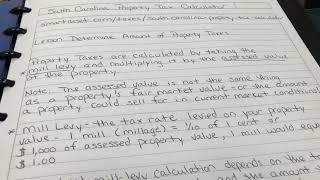 South Carolina Property Tax Calculator
smartasset.com/taxes/south-carolina-property-tax-calculator
Lesson: Determine Amount of Property Taxes
Property Taxes are calculated by taking the
mill levy and multiplying it by the assessed value
of the property.
Note: The assessed value is not the same thing
as a property's fair market value - or the amount
a property could sell for in current market conditions
* Mill Levy - the tax rate levied on your property
value - 1 mill (millage) = 1/10 of 1 cent or
$1,000 of assessed property value, 1 mill would equal
$1.00
mill levy calculation depends on the